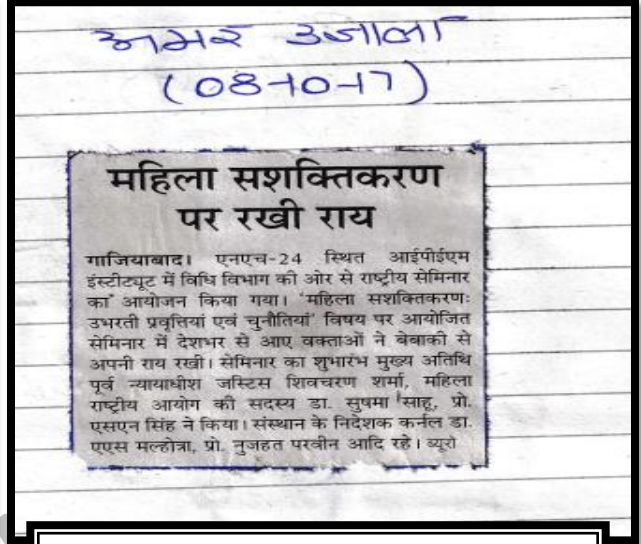 अमर उजाला
(08-10-17)
महिला सशक्तिकरण
पर रखी राय
गाजियाबाद। एनएच-24 स्थित आईपीईएम
इंस्टीट्यूट में विधि विभाग की ओर से राष्ट्रीय सेमिनार
का आयोजन किया गया। 'महिला सशक्तिकरणः
उभरती प्रवृत्तियां एवं चुनौतियां' विषय पर आयोजित
सेमिनार में देशभर से आए वक्ताओं ने बेबाकी से
अपनी राय रखी। सेमिनार का शुभारंभ मुख्य अतिथि
पूर्व न्यायाधीश जस्टिस शिवचरण शर्मा, महिला
राष्ट्रीय आयोग की सदस्य डा. सुषमा साहू, प्रो.
एसएन सिंह ने किया। संस्थान के निदेशक कर्नल डा.
एएस मल्होत्रा, प्रो. नुजहत परवीन आदि रहे। ब्यूरो